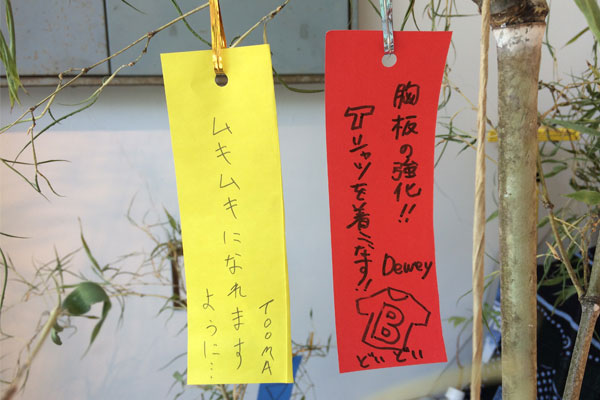 ムキムキになれます
ように…
TOOMA
胸板の強化!!
Tシャツを着こなす!!
Dewey
B
どい どい